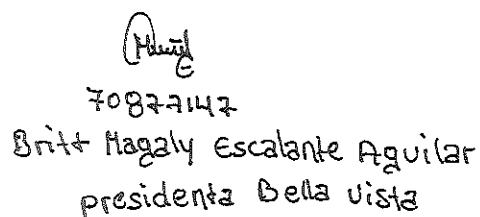 70877147
Britt Magaly Escalante Aguilar
presidenta Bella vista